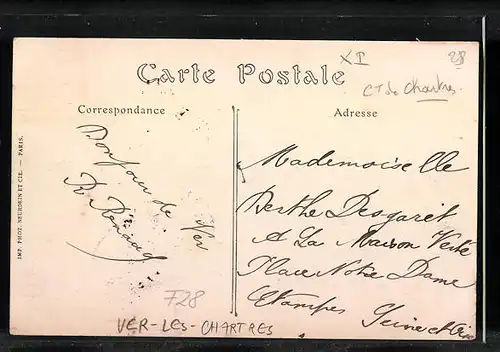 XI
28
Carte Postale
CT de Chartres
Correspondance
Adresse
Bonjour de Ver
R. Renard
Mademoiselle
Berthe Desgaret
A La Maison Verte
Place Notre Dame
Etampes Seine et Oise
IMP. PHOT. NEURDEIN ET CIE. — PARIS.
F28
VER-LES-CHARTRES